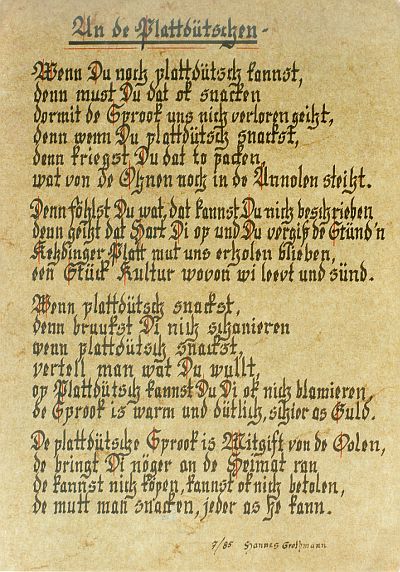 An de Plattdütschen -
Wenn Du noch plattdütsch kannst,
denn must Du dat ok snacken
dormit de Sprook uns nich verloren geiht,
denn wenn Du plattdütsch snackst,
denn kriegst Du dat to packen,
wat von de Ohnen noch in de Annolen steiht.
Denn föhlst Du wat, dat kannst Du nich beschrieben
denn geiht dat Hart Di op und Du vergiß de Stünd'n
Kehdinger Platt mut uns erholen blieben,
een Stück Kultur wovon wi leevt und sünd.
Wenn plattdütsch snackst,
denn brukst Di nich schanieren
wenn plattdütsch snackst,
vertell man wat Du wullt,
op Plattdütsch kannst Du Di ok nich blamieren,
de Sprook is warm und dütlich, schier as Guld.
De plattdütsche Sprook is Mitgift von de Oolen,
de bringt Di nöger an de Heimat ran
de kannst nich köpen, kannst ok nich betolen,
de mutt man snacken, jeder as he kann.
7/85 Hannes Grothmann